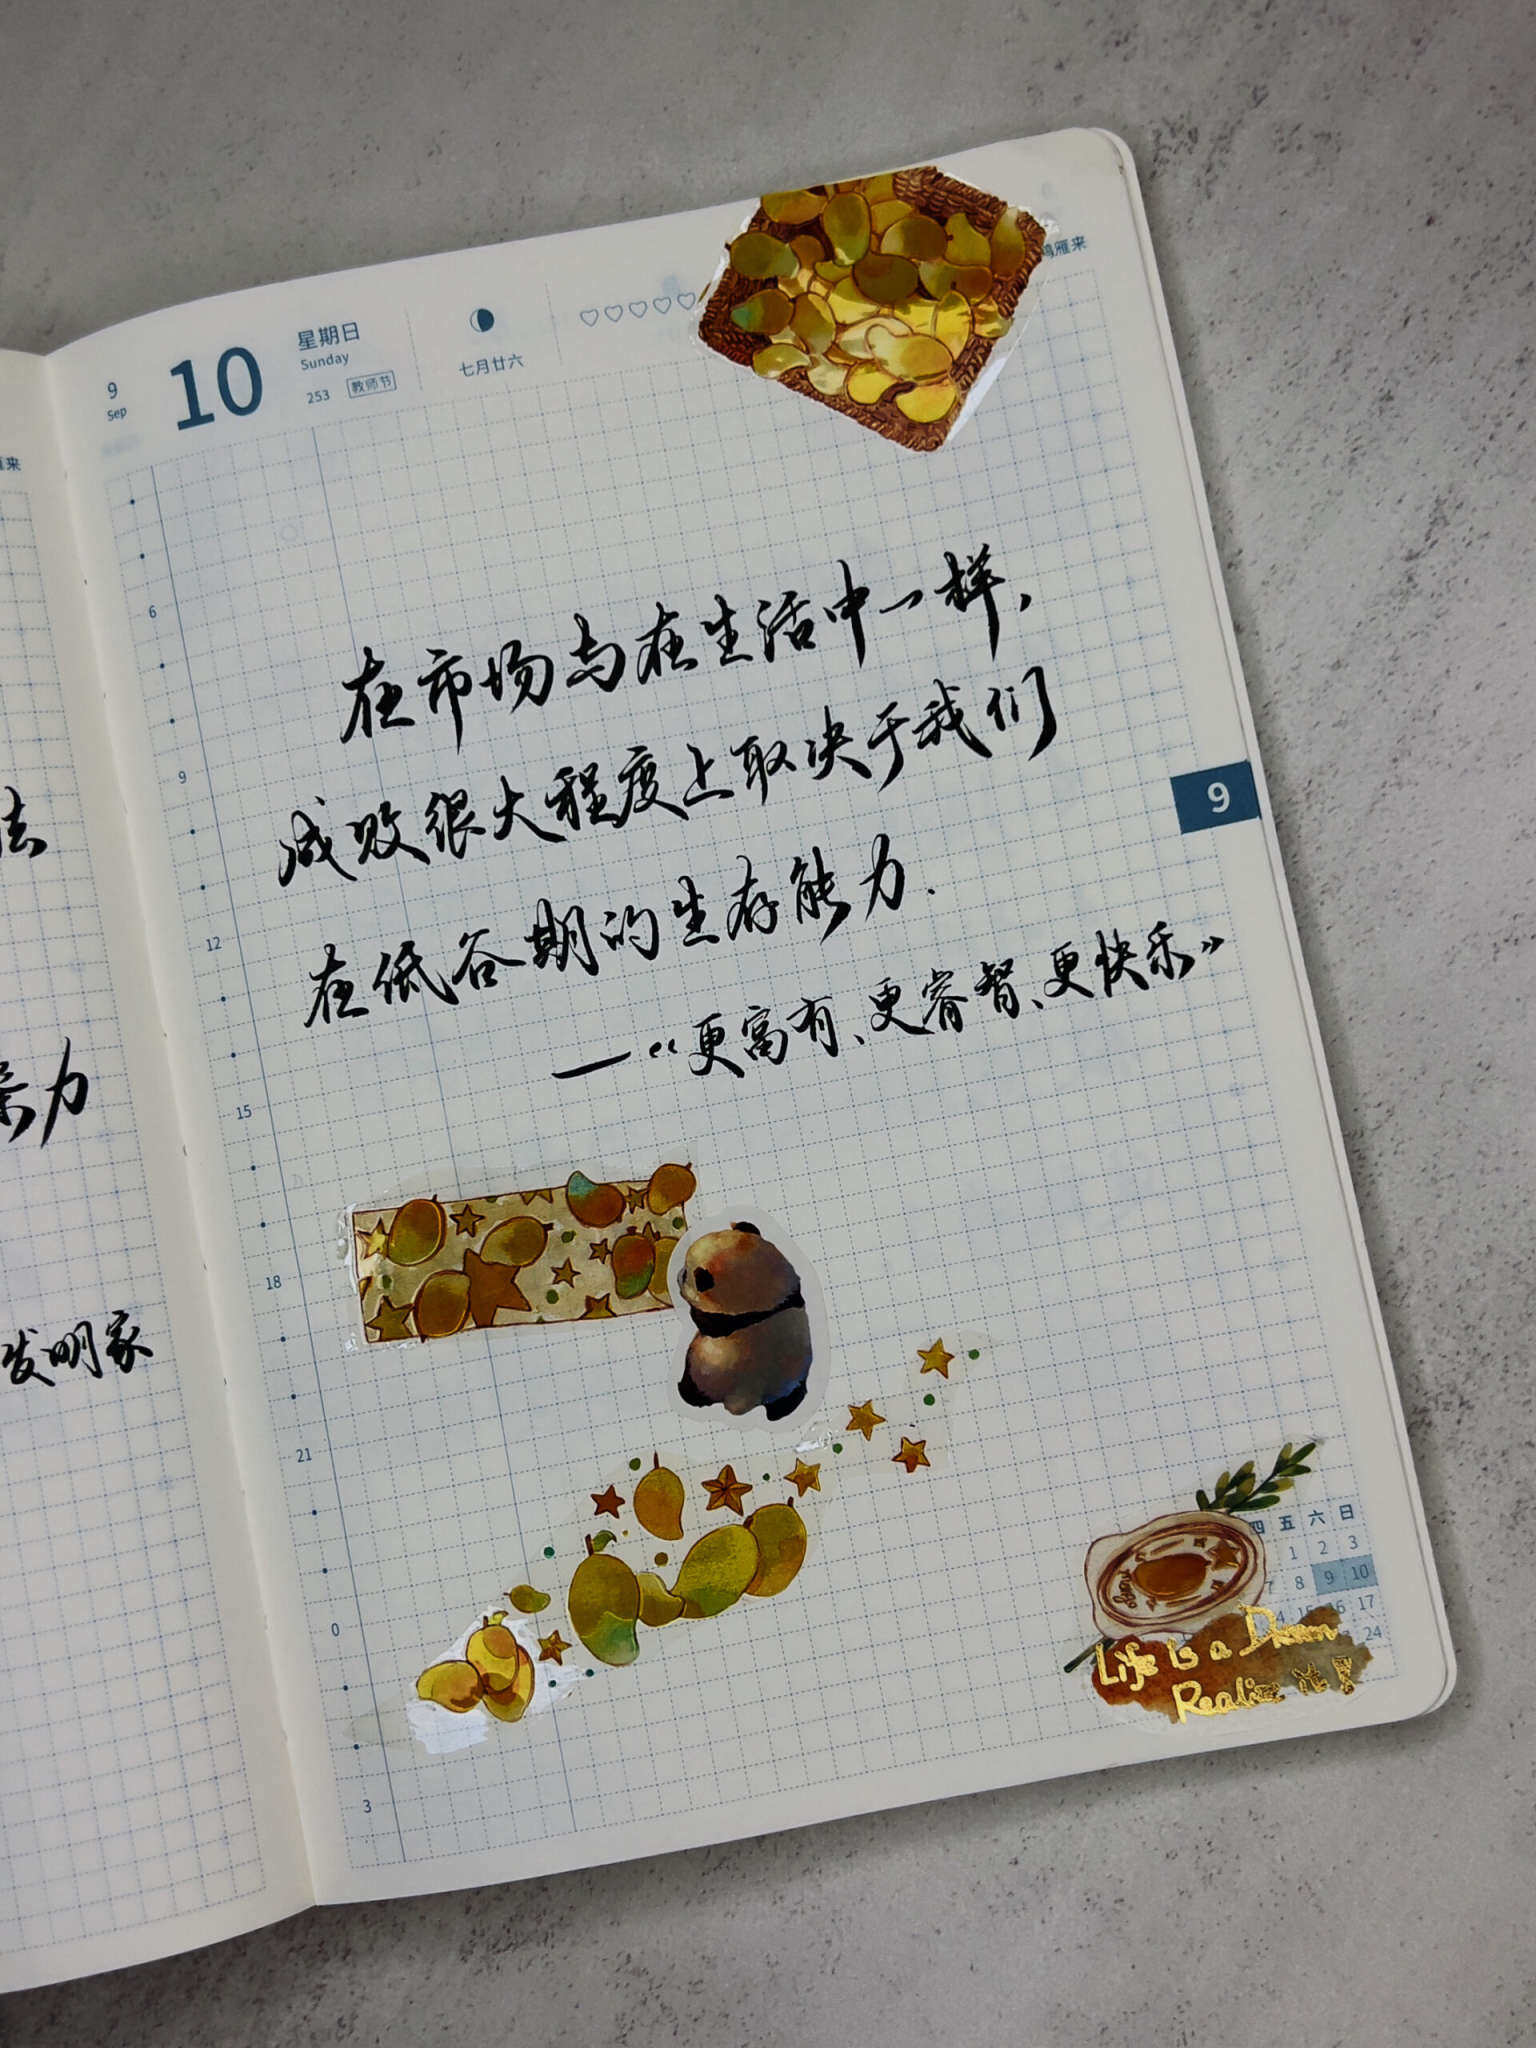 雁来
法
力
发明家
9
Sep
10
星期日
Sunday
253 教师节
七月廿六
鸿雁来
6
9
12
15
18
21
0
3
在市场与在生活中一样，
成败很大程度上取决于我们
在低谷期的生存能力.
——《更富有、更睿智、更快乐》
9
四 五 六 日
1 2 3
7 8 9 10
14 15 16 17
24
Life is a Dream
Realize it!